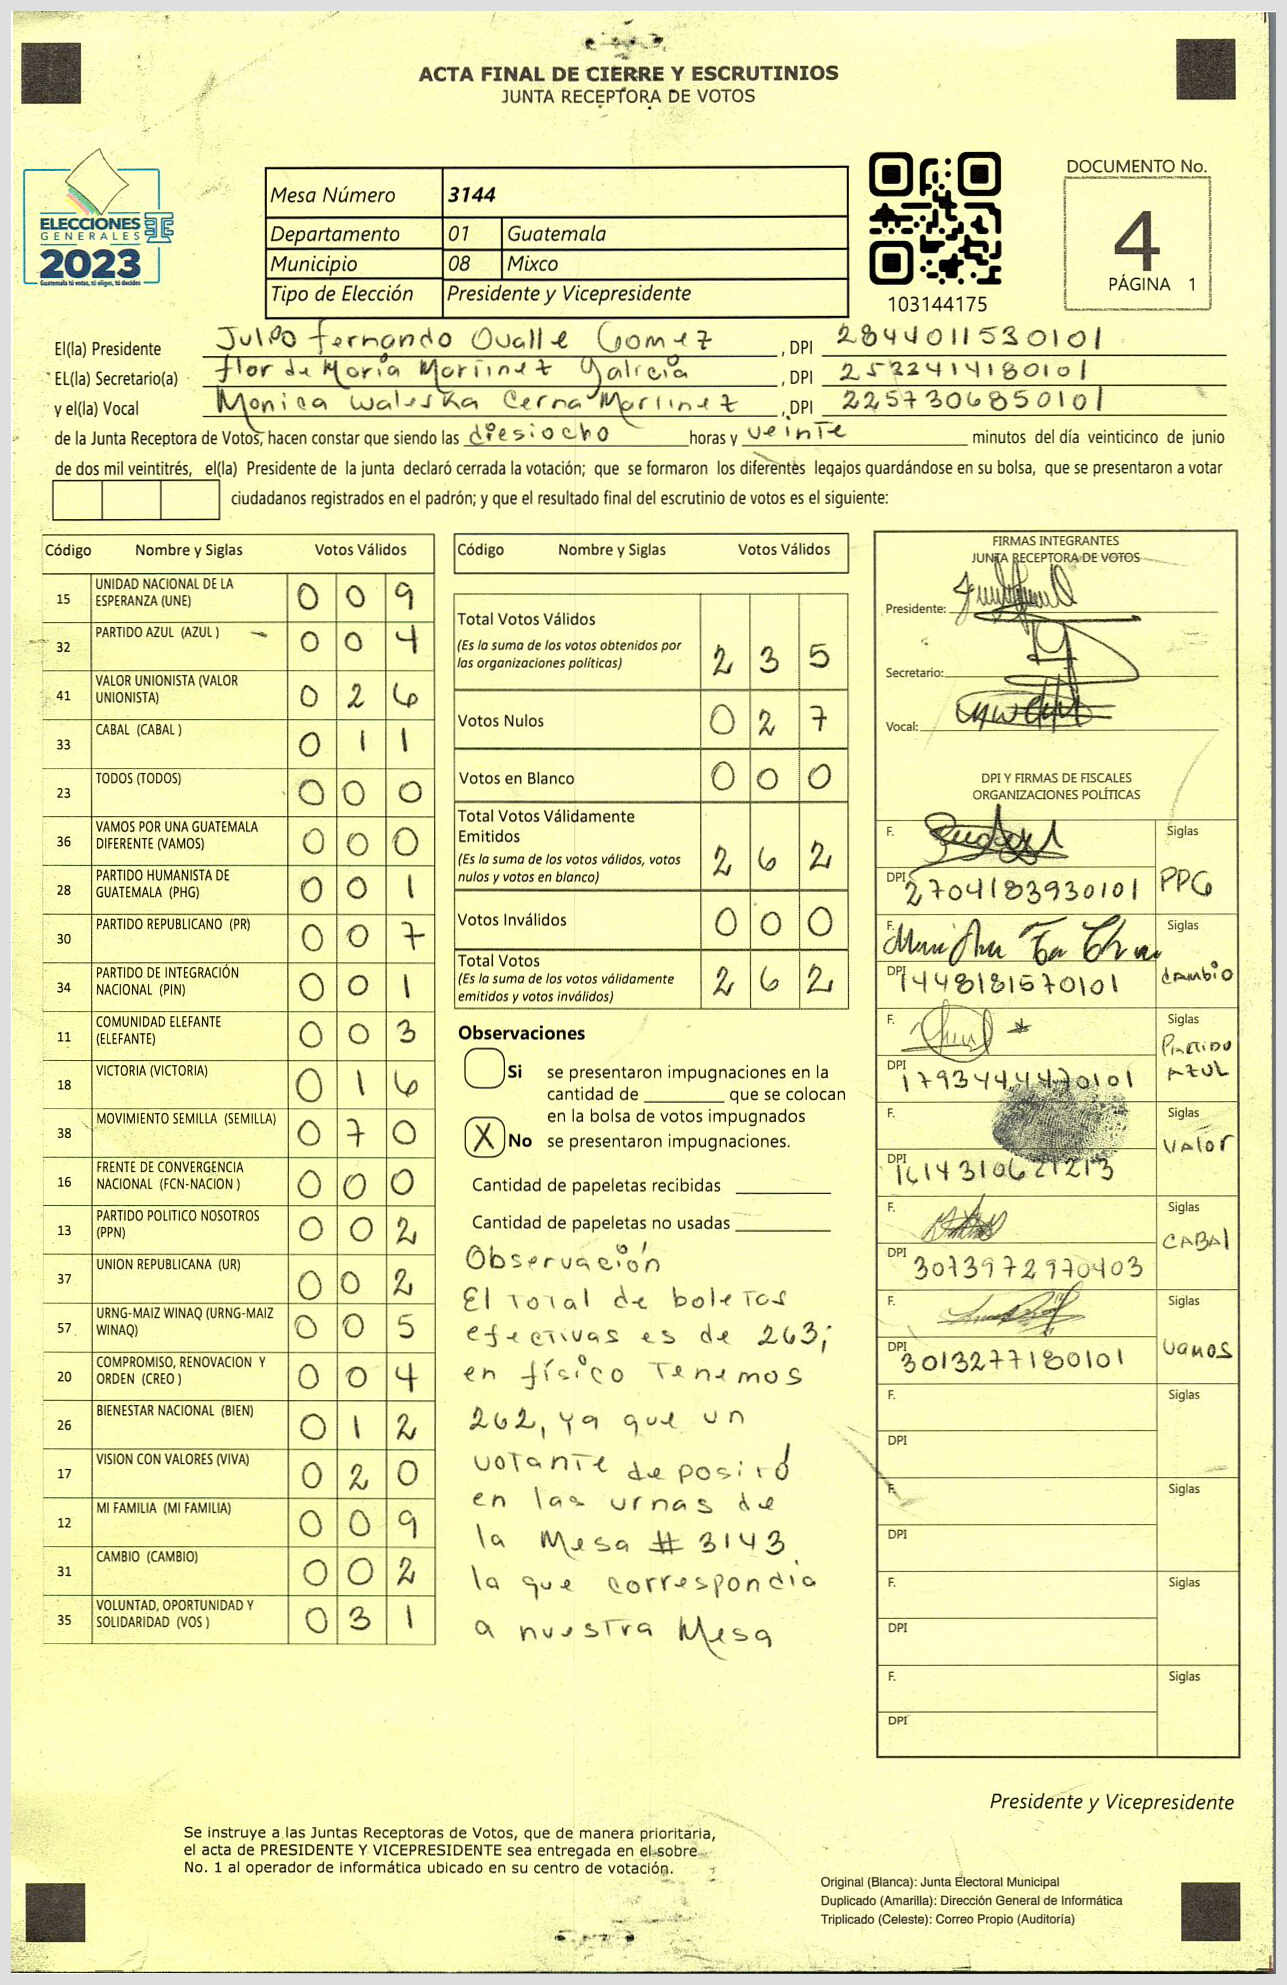 ACTA FINAL DE CIERRE Y ESCRUTINIOS
JUNTA RECEPTORA DE VOTOS
ELECCIONES
GENERALES
2023
Guatemala tú votas, tú eliges, tú decides
Mesa Número 3144
Departamento 01 Guatemala
Municipio 08 Mixco
Tipo de Elección Presidente y Vicepresidente
103144175
DOCUMENTO No.
4
PÁGINA 1
El(la) Presidente Julio Fernando Ovalle Gomez , DPI 2844011530101
EL(la) Secretario(a) flor de María Martinez Galicia , DPI 2532414180101
y el(la) Vocal Monica Waleska Cerna Martinez , DPI 2257306850101
de la Junta Receptora de Votos, hacen constar que siendo las diesiocho horas y veinte minutos del día veinticinco de junio
de dos mil veintitrés, el(la) Presidente de la junta declaró cerrada la votación; que se formaron los diferentes legajos guardándose en su bolsa, que se presentaron a votar
ciudadanos registrados en el padrón; y que el resultado final del escrutinio de votos es el siguiente:
Código Nombre y Siglas Votos Válidos
15 UNIDAD NACIONAL DE LA
ESPERANZA (UNE) 0 0 9
32 PARTIDO AZUL (AZUL ) 0 0 4
41 VALOR UNIONISTA (VALOR
UNIONISTA) 0 2 6
33 CABAL (CABAL ) 0 1 1
23 TODOS (TODOS) 0 0 0
36 VAMOS POR UNA GUATEMALA
DIFERENTE (VAMOS) 0 0 0
28 PARTIDO HUMANISTA DE
GUATEMALA (PHG) 0 0 1
30 PARTIDO REPUBLICANO (PR) 0 0 7
34 PARTIDO DE INTEGRACIÓN
NACIONAL (PIN) 0 0 1
11 COMUNIDAD ELEFANTE
(ELEFANTE) 0 0 3
18 VICTORIA (VICTORIA) 0 1 6
38 MOVIMIENTO SEMILLA (SEMILLA) 0 7 0
16 FRENTE DE CONVERGENCIA
NACIONAL (FCN-NACION ) 0 0 0
13 PARTIDO POLITICO NOSOTROS
(PPN) 0 0 2
37 UNION REPUBLICANA (UR) 0 0 2
57 URNG-MAIZ WINAQ (URNG-MAIZ
WINAQ) 0 0 5
20 COMPROMISO, RENOVACION Y
ORDEN (CREO ) 0 0 4
26 BIENESTAR NACIONAL (BIEN) 0 1 2
17 VISION CON VALORES (VIVA) 0 2 0
12 MI FAMILIA (MI FAMILIA) 0 0 9
31 CAMBIO (CAMBIO) 0 0 2
35 VOLUNTAD, OPORTUNIDAD Y
SOLIDARIDAD (VOS ) 0 3 1
Código Nombre y Siglas Votos Válidos
Total Votos Válidos
(Es la suma de los votos obtenidos por
las organizaciones políticas) 2 3 5
Votos Nulos 0 2 7
Votos en Blanco 0 0 0
Total Votos Válidamente
Emitidos
(Es la suma de los votos válidos, votos
nulos y votos en blanco) 2 6 2
Votos Inválidos 0 0 0
Total Votos
(Es la suma de los votos válidamente
emitidos y votos inválidos) 2 6 2
Observaciones
Si se presentaron impugnaciones en la
cantidad de ________ que se colocan
en la bolsa de votos impugnados
X No se presentaron impugnaciones.
Cantidad de papeletas recibidas
Cantidad de papeletas no usadas
Observación
El total de boletas
efectivas es de 263;
en físico tenemos
262, ya que un
votante depositó
en las urnas de
la Mesa # 3143
la que correspondía
a nuestra Mesa
FIRMAS INTEGRANTES
JUNTA RECEPTORA DE VOTOS
Presidente:
Secretario:
Vocal:
DPI Y FIRMAS DE FISCALES
ORGANIZACIONES POLÍTICAS
F. Siglas
DPI 2704183930101 PPG
F. Siglas
DPI 1448181570101 cambio
F. Siglas
DPI 1793444470101 Partido AZUL
F. Siglas
DPI 1614310621213 VAlor
F. Siglas
DPI 3073972970403 CABAl
F. Siglas
DPI 3013277180101 vamos
F. Siglas
DPI
F. Siglas
DPI
F. Siglas
DPI
F. Siglas
DPI
Presidente y Vicepresidente
Se instruye a las Juntas Receptoras de Votos, que de manera prioritaria,
el acta de PRESIDENTE Y VICEPRESIDENTE sea entregada en el sobre
No. 1 al operador de informática ubicado en su centro de votación.
Original (Blanca): Junta Electoral Municipal
Duplicado (Amarilla): Dirección General de Informática
Triplicado (Celeste): Correo Propio (Auditoría)